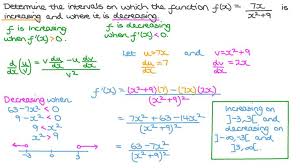 Determine the intervals on which the function f(x) = 7x/(x²+9) is
increasing and where it is decreasing.
f is increasing when f'(x) > 0.
f is decreasing when f'(x) < 0.
d/dx (u/v) = (v du/dx - u dv/dx)/v²
Let u = 7x and v = x²+9
du/dx = 7 dv/dx = 2x
f'(x) = ((x²+9)(7) - (7x)(2x))/(x²+9)²
= (7x² + 63 - 14x²)/(x²+9)²
= (63 - 7x²)/(x²+9)²
Decreasing when
63 - 7x² < 0
9 - x² < 0
9 < x²
x² > 9
-3 3
increasing on
]-3,3[ and
decreasing on
]-∞,-3[ and
]3,∞[.